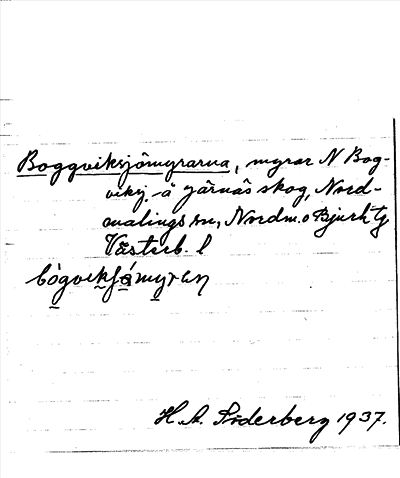 Boggviksjömyrarna, myrar N Bog-
viksj. å Järnäs skog, Nord-
malings sn, Nordm. o Bjurh. tg
Västerb. l
bògvikʃǻmyran
H. A. Söderberg 1937.